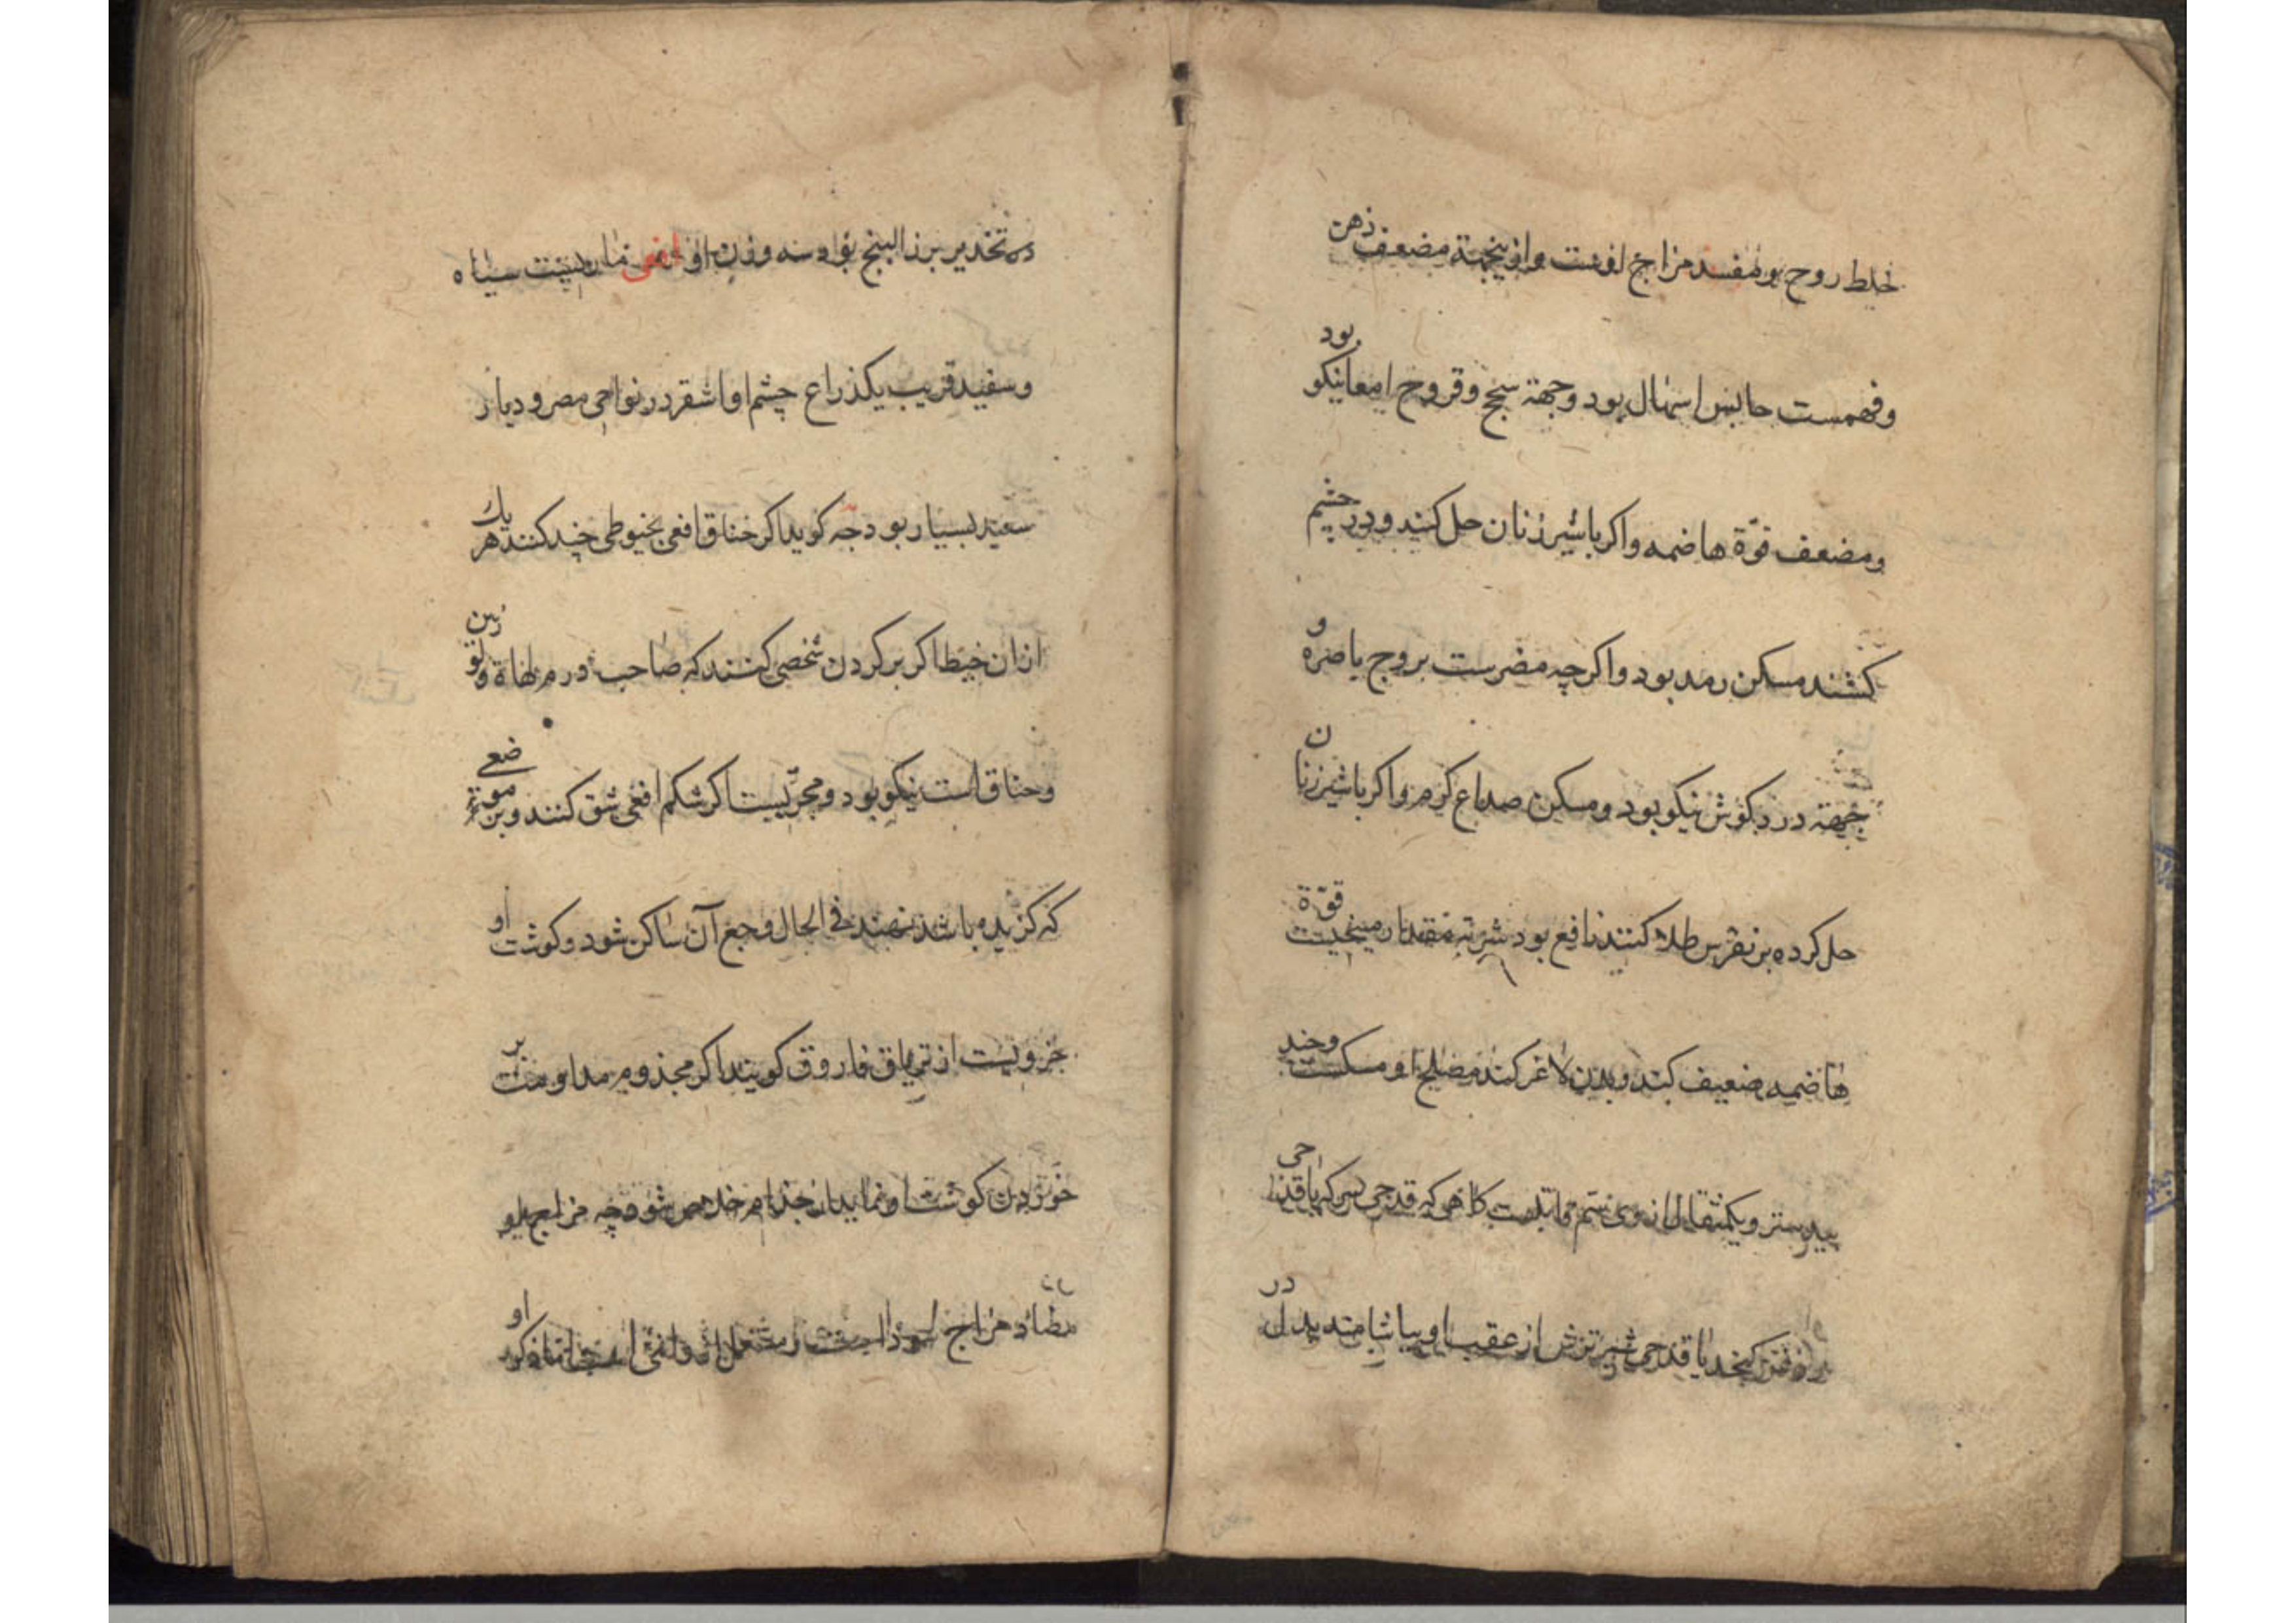 خلط روح بود مفسد مزاج اوست و ازینجهتة مضعف ذهن
و فهمست حابس اسهال بود و جهتة سحج و قروح امعا نیکو بود
و مضعف قوّة هاضمه و اکر با شیر زنان حل کنند و در چشم
کشند مسکن رمد بود و اکرچه مضرست بروح باصره و
جهتة درد کوش نیکو بود و مسکن صداع کرم و اکر با شیر زنان
حل کرده بر نقرس طلا کنند نافع بود قوّة
هاضمه ضعیف کند و بدن لاغر کند مصلح او مسکست و جند
بیدستر و یکمثقال از وی کاهی که قدحی سرکه یا قدحی
یا قدحی شیر ترش از عقب او بیاشامند بدل در
تخدیر بزر البنج بود سه وزن او افعی ماریست سیاه
و سفید قریب یکذراع چشم او اشقر در نواحی مصر و دیار
سعید بسیار بود جه کوید اکر خناق افعی بخیوطی چند کنند هر یک
ازان خیط اکر بر کردن شخصی کنند که صاحب ورم لهاة و لوزتین
و خناق است نیکو بود و مجرّبست اکر شکم افعی شق کنند و بر موضعی
که کزیده باشد نهند فی الحال وجع آن ساکن شود و کوشت او
جزویست از تریاق فاروق کویند اکر مجذوم مداومت بر
خوردن کوشت او نماید از جذام خلاص شود چه مزاج او
مضاد مزاج